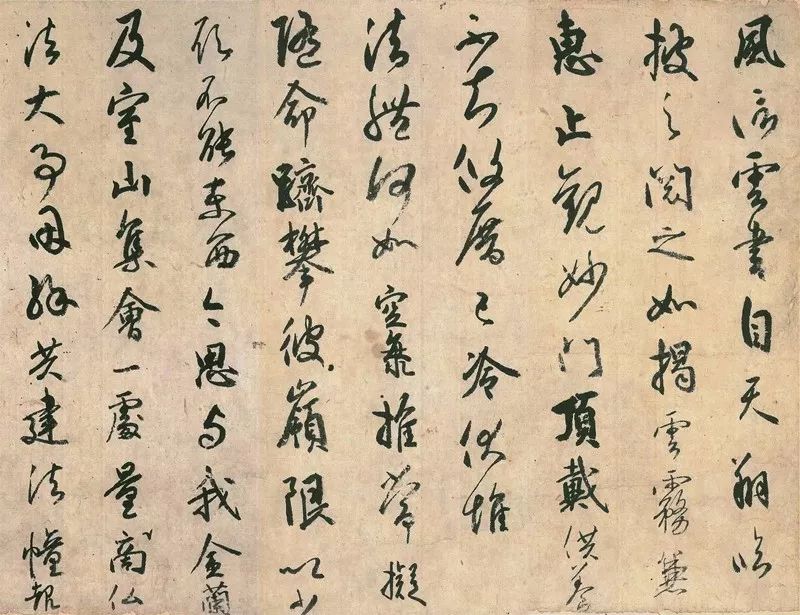 風信雲書自天翔臨
披之閲之如揭雲霧兼
惠止觀妙門頂戴供養
不知攸厝已冷伏惟
法體何如空海推常擬
隨命躋攀彼嶺限以少
願不能東西今思与我金蘭
及室山集會一處量商仏
法大事因縁共建法幢報